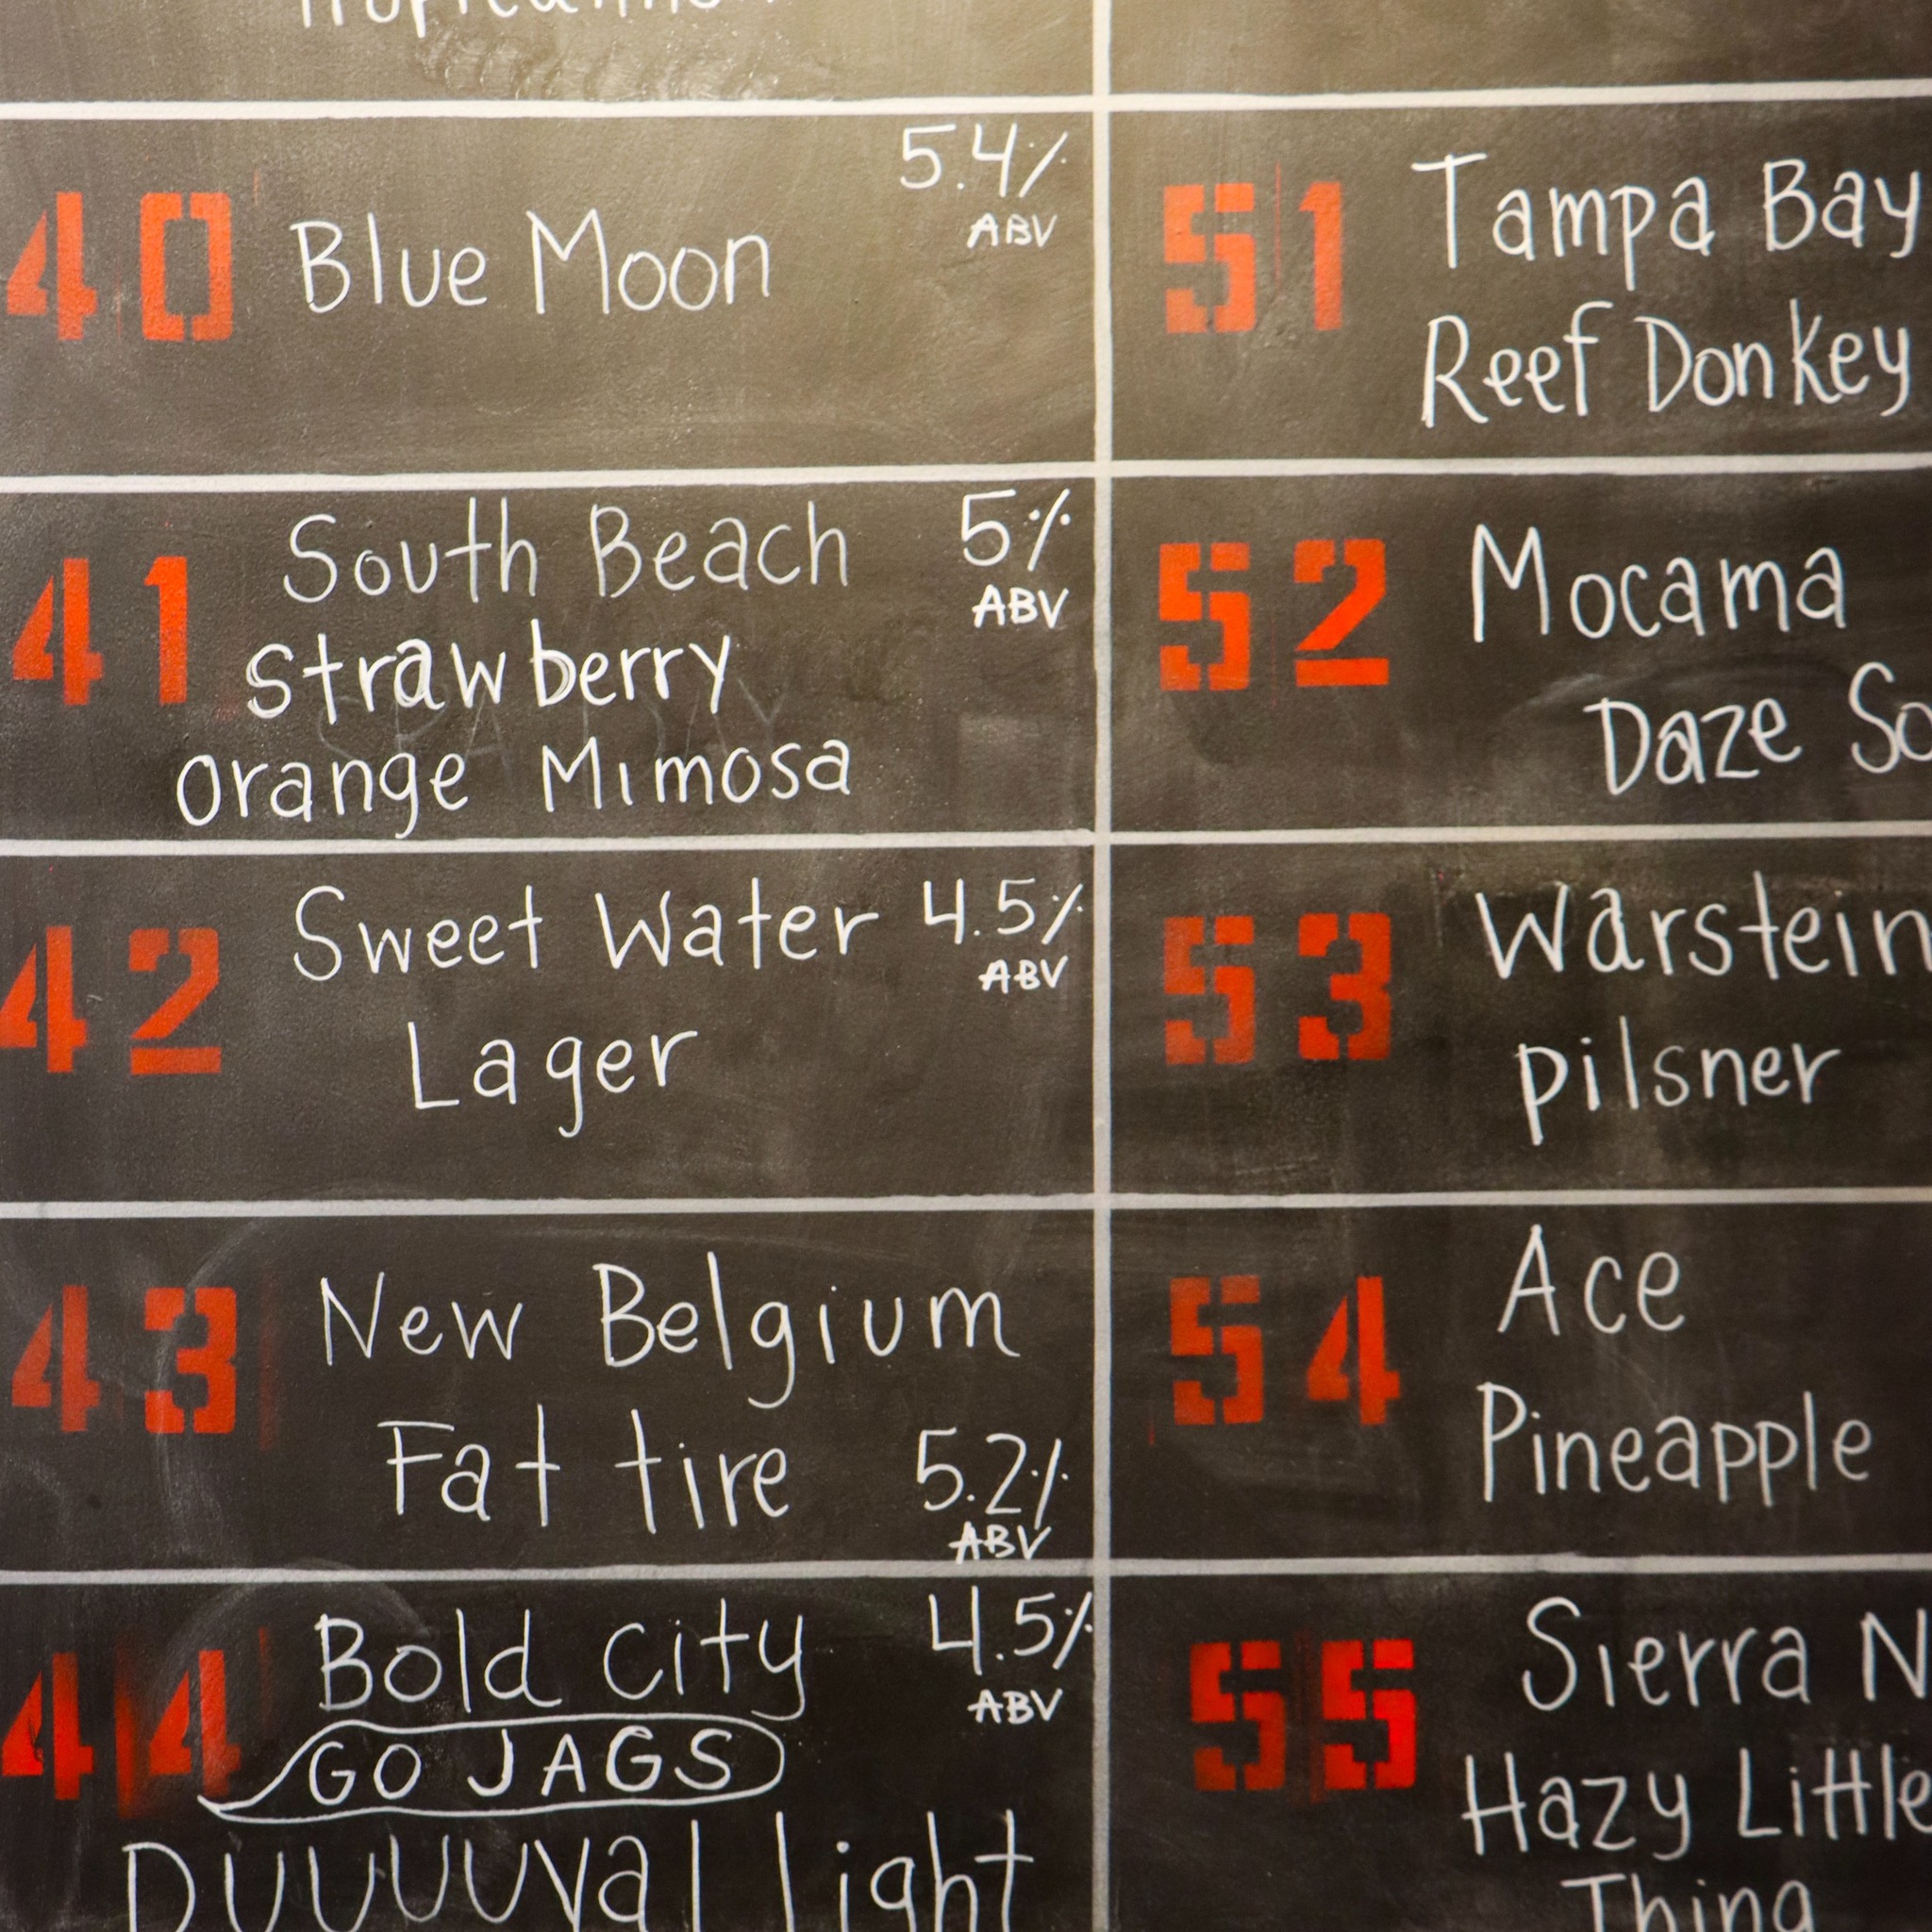 40 Blue Moon 5.4%
ABV
41 South Beach 5%
ABV
Strawberry
Orange Mimosa
42 Sweet Water 4.5%
ABV
Lager
43 New Belgium
Fat tire 5.2%
ABV
44 Bold City 4.5%
ABV
GO JAGS
Duuuuval light
51 Tampa Bay
Reef Donkey
52 Mocama
Daze So
53 Warstein
pilsner
54 Ace
Pineapple
55 Sierra N
Hazy Little
Thing